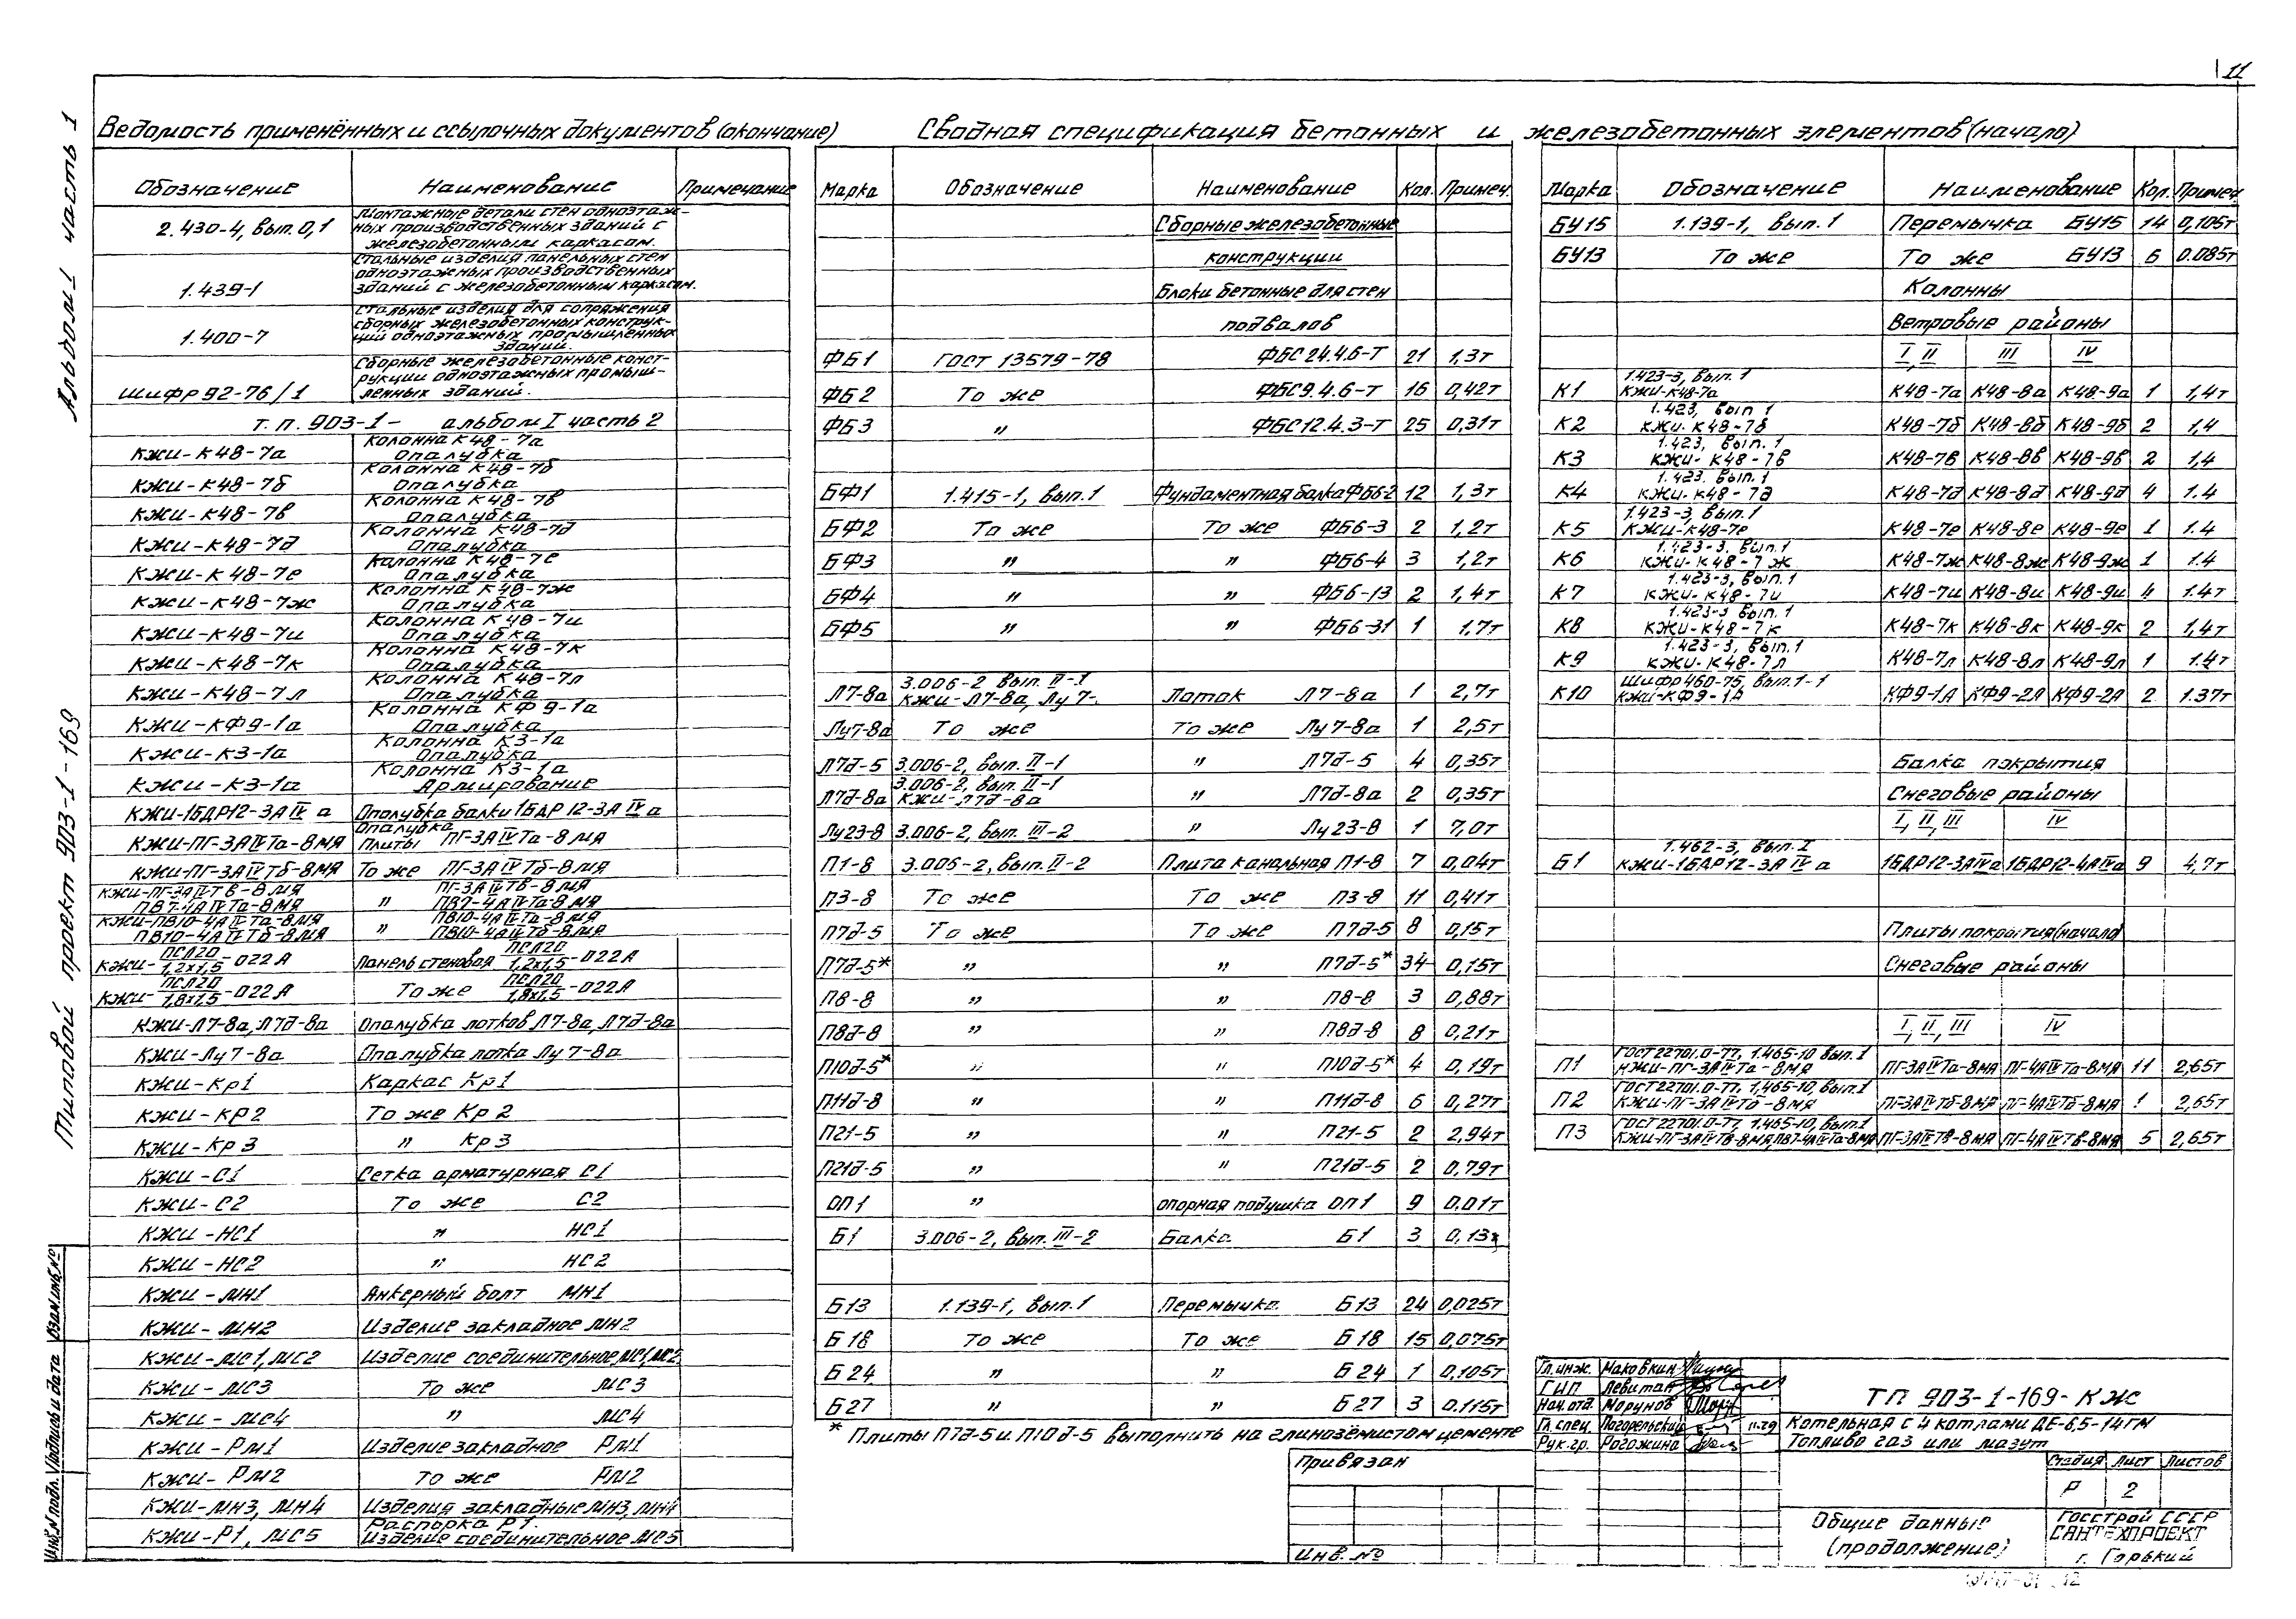 11
Альбом 1 часть 1
Типовой проект 903-1-169
Ведомость применённых и ссылочных документов (окончание)
Обозначение Наименование Примечание
2.430-4, вып. 0,1 Монтажные детали стен одноэтаж-
ных производственных зданий с
железобетонным каркасом.
1.439-1 Стальные изделия панельных стен
одноэтажных производственных
зданий с железобетонным каркасом.
1.400-7 Стальные изделия для сопряжения
сборных железобетонных конструк-
ций одноэтажных промышленных
зданий.
Шифр 92-76/1 Сборные железобетонные конст-
рукции одноэтажных промыш-
ленных зданий.
т.п. 903-1- альбом I часть 2
КЖИ-К48-7а Колонна К48-7а
Опалубка
КЖИ-К48-7б Колонна К48-7б
Опалубка
КЖИ-К48-7в Колонна К48-7в
Опалубка
КЖИ-К48-7д Колонна К48-7д
Опалубка
КЖИ-К48-7е Колонна К48-7е
Опалубка
КЖИ-К48-7ж Колонна К48-7ж
Опалубка
КЖИ-К48-7и Колонна К48-7и
Опалубка
КЖИ-К48-7к Колонна К48-7к
Опалубка
КЖИ-К48-7л Колонна К48-7л
Опалубка
КЖИ-КФ9-1а Колонна КФ9-1а
Опалубка
КЖИ-К3-1а Колонна К3-1а
Опалубка
КЖИ-К3-1а Колонна К3-1а
Армирование
КЖИ-1БДР12-3АIVа Опалубка балки 1БДР12-3АIVа
КЖИ-ПГ-3АIVТа-8МЯ Опалубка
плиты ПГ-3АIVТа-8МЯ
КЖИ-ПГ-3АIVТб-8МЯ То же ПГ-3АIVТб-8МЯ
КЖИ-ПГ-3АIVТв-8МЯ ПГ-3АIVТв-8МЯ
ПВ7-4АIVТа-8МЯ " ПВ7-4АIVТа-8МЯ
КЖИ-ПВ10-4АIVТа-8МЯ ПВ10-4АIVТа-8МЯ
ПВ10-4АIVТб-8МЯ " ПВ10-4АIVТб-8МЯ
КЖИ-ПСЛ20/1,2х1,5-022А Панель стеновая ПСЛ20/1,2х1,5-022А
КЖИ-ПСЛ20/1,8х1,5-022А То же ПСЛ20/1,8х1,5-022А
КЖИ-Л7-8а, Л7д-8а Опалубка лотков Л7-8а, Л7д-8а
КЖИ-Лу7-8а Опалубка лотка Лу7-8а
КЖИ-Кр1 Каркас Кр1
КЖИ-КР2 То же Кр2
КЖИ-Кр3 " Кр3
КЖИ-С1 Сетка арматурная С1
КЖИ-С2 То же С2
КЖИ-НС1 " НС1
КЖИ-НС2 " НС2
КЖИ-МН1 Анкерный болт МН1
КЖИ-МН2 Изделие закладное МН2
КЖИ-МС1, МС2 Изделие соединительное МС1, МС2
КЖИ-МС3 То же МС3
КЖИ-МС4 " МС4
КЖИ-РМ1 Изделие закладное РМ1
КЖИ-РМ2 То же РМ2
КЖИ-МН3, МН4 Изделия закладные МН3, МН4
КЖИ-Р1, МС5 Распорка Р1.
Изделие соединительное МС5
Сводная спецификация бетонных и железобетонных элементов (начало)
Марка Обозначение Наименование Кол. Примеч.
Сборные железобетонные
конструкции
Блоки бетонные для стен
подвалов
ФБ1 ГОСТ 13579-78 ФБС24.4.6-Т 21 1,3т
ФБ2 То же ФБС9.4.6-Т 16 0,42т
ФБ3 " ФБС12.4.3-Т 25 0,31т
БФ1 1.415-1, вып.1 Фундаментная балка ФБ6-2 12 1,3т
БФ2 То же То же ФБ6-3 2 1,2т
БФ3 " " ФБ6-4 3 1,2т
БФ4 " " ФБ6-13 2 1,4т
БФ5 " " ФБ6-31 1 1,7т
Л7-8а 3.006-2 вып. II-1
КЖИ-Л7-8а, Лу7-. Лоток Л7-8а 1 2,7т
Лу7-8а То же То же Лу7-8а 1 2,5т
Л7д-5 3.006-2, вып. II-1 " Л7д-5 4 0,35т
Л7д-8а 3.006-2, вып. II-1
КЖИ-Л7д-8а " Л7д-8а 2 0,35т
Лу23-8 3.006-2, вып. III-2 " Лу23-8 1 7,0т
П1-8 3.006-2, вып. II-2 Плита канальная П1-8 7 0,04т
П3-8 То же То же П3-8 11 0,41т
П7д-5 То же То же П7д-5 8 0,15т
П7д-5* " " П7д-5* 34 0,15т
П8-8 " " П8-8 3 0,88т
П8д-8 " " П8д-8 8 0,21т
П10д-5* " " П10д-5* 4 0,19т
П11д-8 " " П11д-8 6 0,27т
П21-5 " " П21-5 2 2,94т
П21д-5 " " П21д-5 2 0,79т
ОП1 " опорная подушка ОП1 9 0,01т
Б1 3.006-2, вып. III-2 Балка Б1 3 0,13т
Б13 1.139-1, вып.1 Перемычка Б13 24 0,025т
Б18 То же То же Б18 15 0,075т
Б24 " " Б24 1 0,105т
Б27 " " Б27 3 0.115т
* Плиты П7д-5 и П10д-5 выполнить на глинозёмистом цементе
Марка Обозначение Наименование Кол. Примеч.
БУ15 1.139-1, вып.1 Перемычка БУ15 14 0,105т
БУ13 То же То же БУ13 6 0.085т
Колонны
Ветровые районы
I, II III IV
К1 1.423-3, вып. 1
КЖИ-К48-7а К48-7а К48-8а К48-9а 1 1,4т
К2 1.423, вып 1
КЖИ-К48-7б К48-7б К48-8б К48-9б 2 1,4
К3 1.423, вып. 1
КЖИ-К48-7в К48-7в К48-8в К48-9в 2 1,4
К4 1.423. вып.1
КЖИ-К48-7д К48-7д К48-8д К48-9д 4 1.4
К5 1.423-3, вып.1
КЖИ-К48-7е К48-7е К48-8е К48-9е 1 1.4
К6 1.423-3. вып.1
КЖИ-К48-7ж К48-7ж К48-8ж К48-9ж 1 1.4
К7 1.423-3, вып.1
КЖИ-К48-7и К48-7и К48-8и К48-9и 4 1.4т
К8 1.423-3 вып.1
КЖИ-К48-7к К48-7к К48-8к К48-9к 2 1,4т
К9 1.423-3, вып.1
КЖИ-К48-7л К48-7л К48-8л К48-9л 1 1.4т
К10 Шифр 460-75, вып.1-1
КЖИ-КФ9-1А КФ9-1А КФ9-2А КФ9-2А 2 1.37т
Балка покрытия
Снеговые районы
I, II, III IV
Б1 1.462-3, вып. I
КЖИ-1БДР12-3АIVа 1БДР12-3АIVа 1БДР12-4АIVа 9 4,7т
Плиты покрытия (начало)
Снеговые районы
I, II, III IV
П1 ГОСТ 22701.0-77, 1.465-10 вып.1
КЖИ-ПГ-3АIVТа-8МЯ ПГ-3АIVТа-8МЯ ПГ-4АIVТа-8МЯ 11 2,65т
П2 ГОСТ 22701.0-77, 1.465-10, вып.1
КЖИ-ПГ-3АIVТб-8МЯ ПГ-3АIVТб-8МЯ ПГ-4АIVТб-8МЯ 1 2,65т
П3 ГОСТ 22701.0-77, 1.465-10, вып.1
КЖИ-ПГ-3АIVТв-8МЯ, ПВ7-4АIVТа-8МЯ ПГ-3АIVТв-8МЯ ПГ-4АIVТв-8МЯ 5 2,65т
Гл. инж. Маковкин
ГИП Левитан
Нач. отд. Морунов
Гл. спец. Погорельский 11.79
Рук. гр. Рогожина
ТП 903-1-169-КЖ
Котельная с 4 котлами ДЕ-6,5-14ГМ
Топливо газ или мазут
Стадия Лист Листов
Р 2
Общие данные
(продолжение)
Госстрой СССР
САНТЕХПРОЕКТ
г. Горький
Привязан
Инв. №
Инв. № подл. Подпись и дата Взам. инв. №